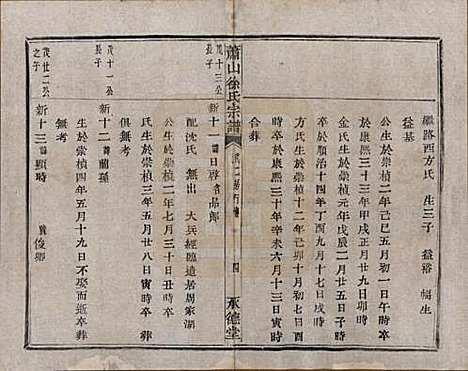 繼路西方氏 生三子 益裕 幅生
益基
公生於崇禎二年己巳五月初一日午時卒
於康熙三十三年甲戌正月廿九日卯時
金氏生於崇禎元年戊辰二月廿五日子時
卒於順治十四年丁酉九月十七日戌時
方氏生於崇禎十二年己卯十月初七日酉
時卒於康熙三十年辛未六月十三日寅時
合葬
蕭山徐氏宗譜
四
承德堂
茂十三公
長子
新十一 諱日啓
配沈氏 無出 大兵經臨遺居周家湖
公生於崇禎二年七月三十日丑時卒
氏生於崇禎三年五月廿八日寅時卒 葬
俱無考
茂十一公
長子
新十二 諱蘭孫
茂廿二公
之子
新十三 諱顯時 冀俊卿
生於崇禎四年五月十九日不知所適卒葬
無考